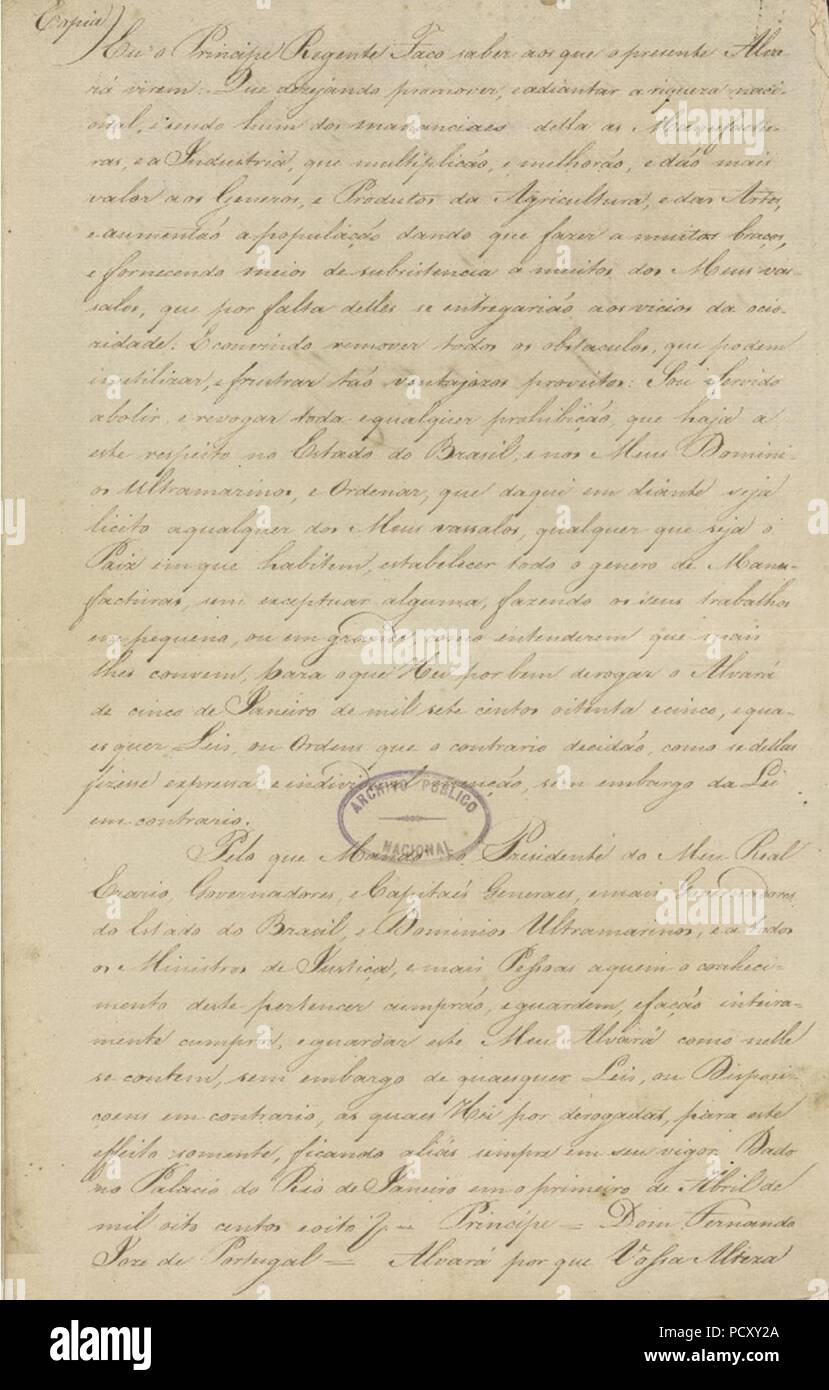 Copia)
Eu o Principe Regente Faço saber aos que o presente Alva-
rá virem: Que dezejando promover, e adiantar a riqueza naci-
onal, e sendo hum dos mananciaes della as Manufactu-
ras, e a Industria, que multiplicão, e melhorão, e dão mais
valor aos Generos, e Produtos da Agricultura, e das Artes,
e aumentão a população dando que fazer a muitos braços,
e fornecendo meios de subsistencia a muitos dos Meus vas-
salos, que por falta delles se entregarião aos vicios da ocio-
zidade: E convindo remover todos os obstaculos, que podem
inutilizar, e frustrar tão ventajozos proveitos: Sou Servido
abolir, e revogar toda e qualquer prohibição, que haja a
este respeito no Estado do Brasil, e nos Meus Domini-
os Ultramarinos, e Ordenar, que daqui em diante seja
licito a qualquer dos Meus vassalos, qualquer que seja o
Paiz em que habitem, estabelecer todo o genero de Manu-
facturas, sem exceptuar alguma, fazendo os seus trabalhos
em pequeno, ou em grande, como intenderem que mais
lhes convem, para o que Hei por bem derogar o Alvará
de cinco de Janeiro de mil sete centos oitenta e cinco, e qua-
esquer Leis, ou Ordens que o contrario decidão, como se dellas
fizesse expressa e individual menção, sem embargo da Lei
em contrario.
ARCHIVO PUBLICO
NACIONAL
Pelo que Mando ao Presidente do Meu Real
Erario, Governadores, e Capitaẽs Generaes, e mais Governadores
do Estado do Brasil, e Dominios Ultramarinos, e a todos
os Ministros de Justiça, e mais Pessoas a quem o conheci-
mento deste pertencer cumprão, e guardem, e fação inteira-
mente cumprir, e guardar este Meu Alvará como nelle
se contem, sem embargo de quaesquer Leis, ou Disposi-
çoens em contrario, as quaes Hei por derogadas, para este
effeito somente, ficando aliás sempre em seu vigor. Dado
no Palacio do Rio de Janeiro em o primeiro de Abril de
mil oito centos e oito = Principe = Dom Fernando
Joze de Portugal = Alvará por que Vossa Alteza
alamy
alamy
alamy
Image ID: PCXY2A
www.alamy.com